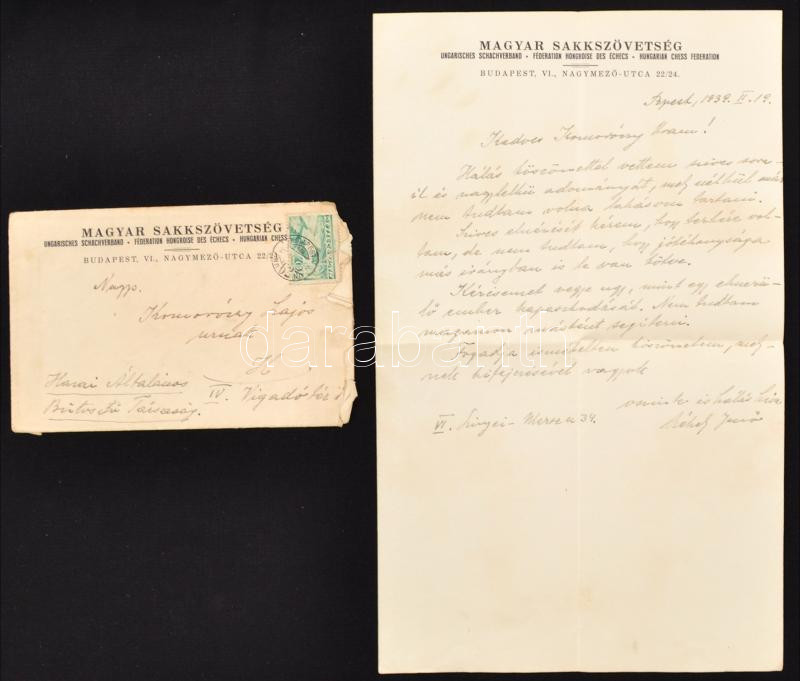 MAGYAR SAKKSZÖVETSÉG
UNGARISCHES SCHACHVERBAND • FÉDÉRATION HONGROISE DES ÉCHECS • HUNGARIAN CHESS
BUDAPEST, VI., NAGYMEZŐ-UTCA 22/24
Nagys.
Komoróczy Lajos
urnak
Hazai Általános
Biztosító Társaság.
IV. Vigadó tér 1
MAGYAR SAKKSZÖVETSÉG
UNGARISCHES SCHACHVERBAND • FÉDÉRATION HONGROISE DES ÉCHECS • HUNGARIAN CHESS FEDERATION
BUDAPEST, VI., NAGYMEZŐ-UTCA 22/24.
Bpest, 1939. II. 19.
Kedves Komoróczy Uram!
Hálás köszönettel vettem szives sora-
it és nagylelkü adományát, mely nélkül már
nem tudtam volna lakásom tartani.
Szives elnézését kérem, hogy terhére vol-
tam, de nem tudtam, hogy jótékonysága
más irányban is le van kötve.
Kérésemet vegye ugy, mint egy elmerü-
lő ember kapaszkodását. Nem tudtam
magamon másként segiteni.
Fogadja ismételten köszönetem, mely-
nek kifejezésével vagyok
őszinte és hálás hive
VI. Szinyei-Merse u 34.
Székely Jenő
darabanth